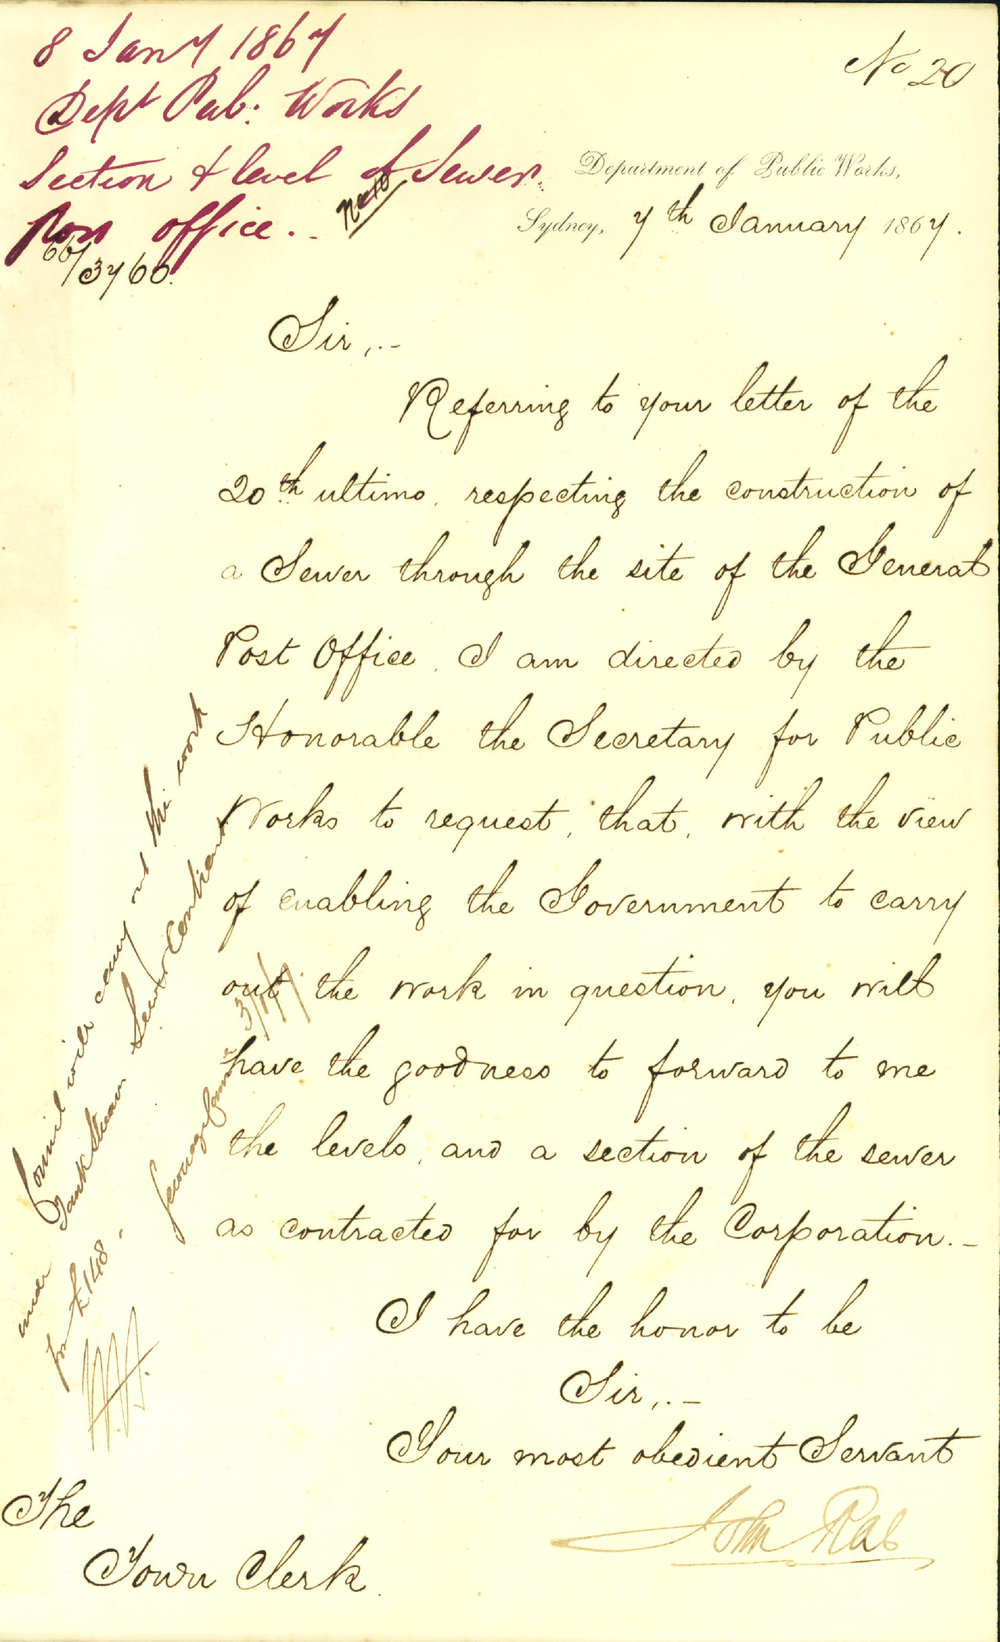 8 Jany 1867
Dept Pub: Works
Section & level of Sewer.
Post office.
66/3760.
No 20
Department of Public Works,
Sydney, 7th January 1867.
Sir,.-
Referring to your letter of the
20th ultimo, respecting the construction of
a Sewer through the site of the General
Post Office, I am directed by the
Honorable the Secretary for Public
Works to request, that, with the view
of enabling the Government to carry
out the work in question, you will
have the goodness to forward to me
the levels, and a section of the sewer
as contracted for by the Corporation.-
I have the honor to be
Sir,.-
Your most obedient Servant
John Rae
The
Town Clerk.
Council will carry out this work
under Tank Stream Sewer Contract
for £148.